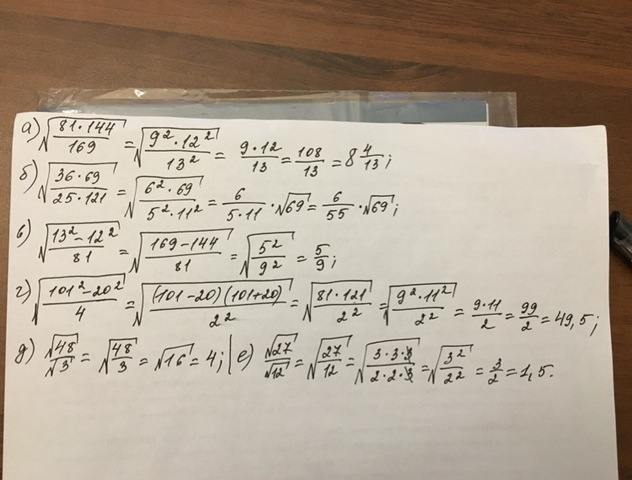 а) √(81·144/169) = √(9²·12²/13²) = 9·12/13 = 108/13 = 8 4/13;
б) √(36·69/25·121) = √(6²·69/5²·11²) = 6/5·11 · √69 = 6/55 · √69;
в) √(13²-12²/81) = √(169-144/81) = √(5²/9²) = 5/9;
г) √(101²-20²/4) = √((101-20)(101+20)/2²) = √(81·121/2²) = √(9²·11²/2²) = 9·11/2 = 99/2 = 49,5;
д) √48/√3 = √(48/3) = √16 = 4; | е) √27/√12 = √(27/12) = √(3·3·3/2·2·3) = √(3²/2²) = 3/2 = 1,5.